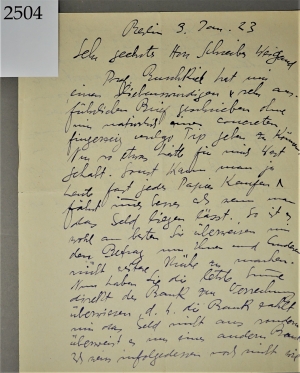 2504
Berlin 9. Jan. 23
Sehr geehrter Herr Schreiber Weigand
Prof. hat mir
einen liebenswürdigen & sehr aus-
führlichen Brief geschrieben ohne
mir natürlich einen concreten
Tip geben zu können
so etwas hätte für mich Wert
gehabt. Sonst kann man ja
heute fast jedes Papier kaufen &
fährt immer besser als wenn man
das Geld liegen lässt. So ist es
wohl am besten Sie überweisen mir
den Betrag um Ihnen und Anderen
nicht weitere Mühe zu machen.
Nun haben Sie die letzte Summe
direkt der Bank zu Verrechnung
überwiesen, d. h. die Bank zahlt
mir das Geld nicht aus sondern
überweist es nur einer andern Bank
infolgedessen noch nicht